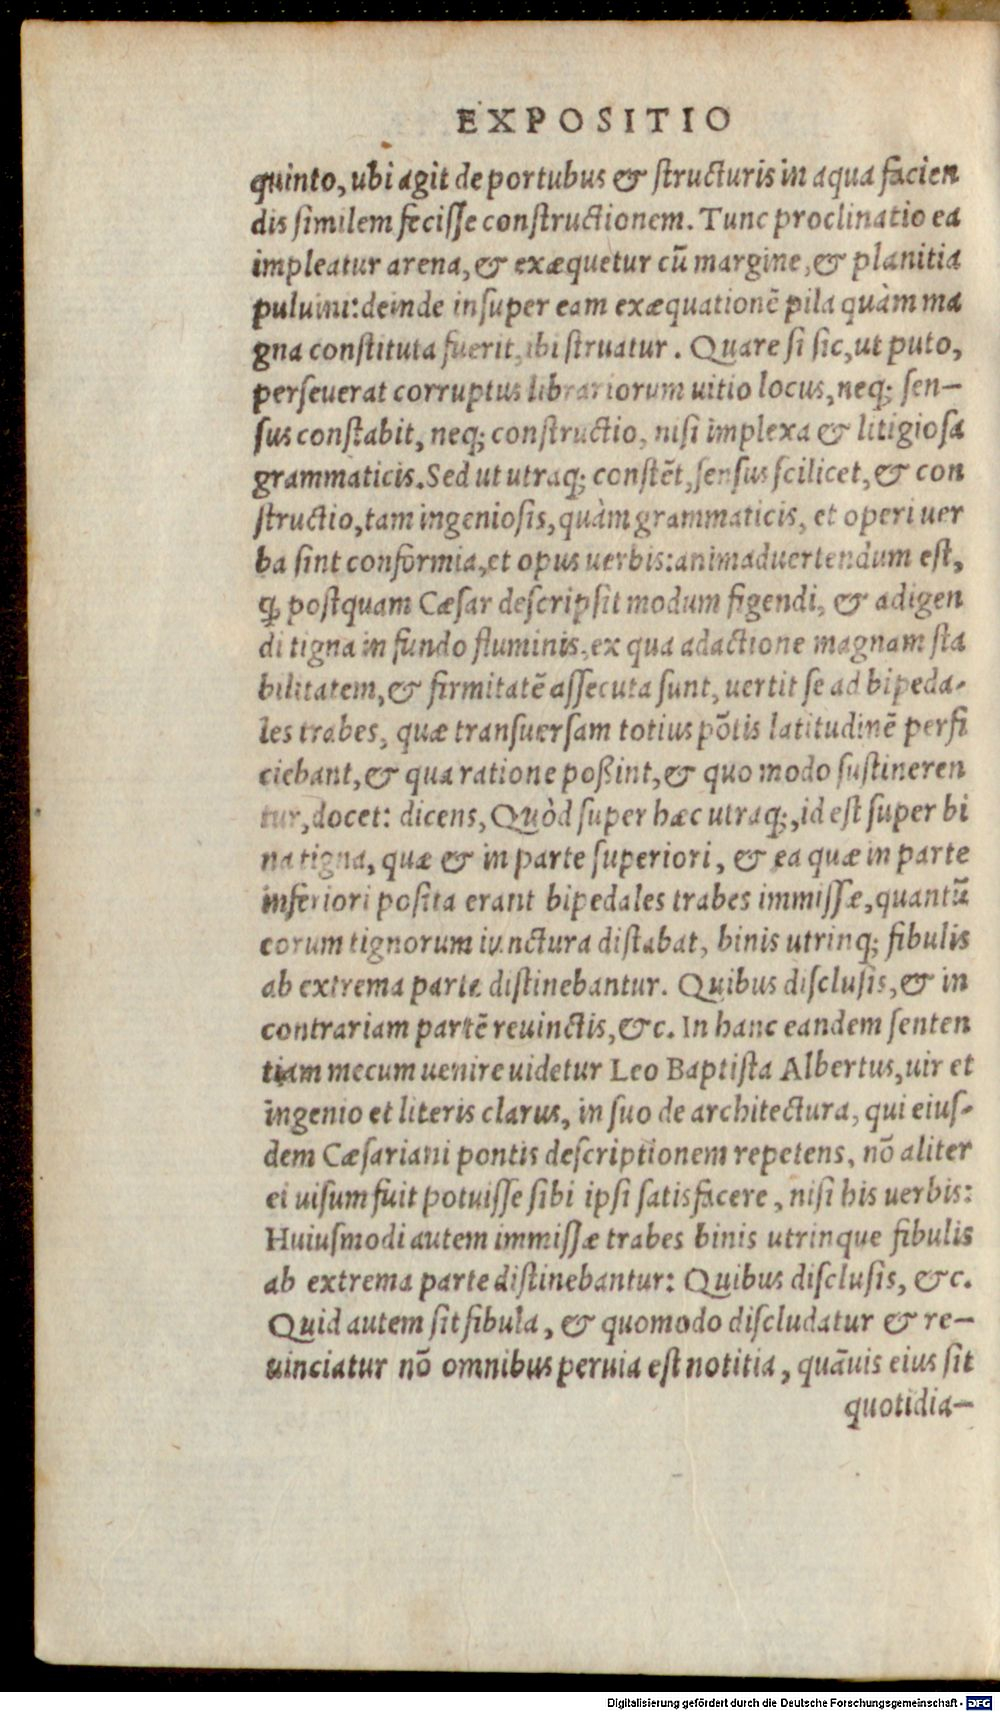 EXPOSITIO
quinto, ubi agit de portubus & ſtructuris in aqua facien
dis ſimilem feciſſe conſtructionem. Tunc proclinatio ea
impleatur arena, & exæquetur cū margine, & planitia
puluini: deinde inſuper eam exæquationē pila quàm ma
gna conſtituta fuerit, ibi ſtruatur. Quare ſi ſic, ut puto,
perſeuerat corruptus librariorum uitio locus, neq; ſen-
ſus conſtabit, neq; conſtructio, niſi implexa & litigioſa
grammaticis. Sed ut utraq; conſtēt, ſenſus ſcilicet, & con
ſtructio, tam ingenioſis, quàm grammaticis, et operi uer
ba ſint conformia, et opus uerbis: animaduertendum eſt,
ꝙ poſtquam Cæſar deſcripſit modum figendi, & adigen
di tigna in fundo fluminis, ex qua adactione magnam ſta
bilitatem, & firmitatē aſſecuta ſunt, uertit ſe ad bipeda-
les trabes, quæ transuerſam totius pōtis latitudinē perfi
ciebant, & qua ratione poßint, & quo modo ſuſtineren
tur, docet: dicens, Quòd ſuper hæc utraq;, id eſt ſuper bi
na tigna, quæ & in parte ſuperiori, & ea quæ in parte
inferiori poſita erant bipedales trabes immiſſæ, quantū
eorum tignorum iunctura diſtabat, binis utrinq; fibulis
ab extrema parte diſtinebantur. Quibus diſcluſis, & in
contrariam partē reuinctis, &c. In hanc eandem ſenten
tiam mecum uenire uidetur Leo Baptiſta Albertus, uir et
ingenio et literis clarus, in ſuo de architectura, qui eiuſ-
dem Cæſariani pontis deſcriptionem repetens, nō aliter
ei uiſum fuit potuiſſe ſibi ipſi ſatisfacere, niſi his uerbis:
Huiuſmodi autem immiſſæ trabes binis utrinque fibulis
ab extrema parte diſtinebantur: Quibus diſcluſis, &c.
Quid autem ſit fibula, & quomodo diſcludatur & re-
uinciatur nō omnibus peruia eſt notitia, quāuis eius ſit
quotidia-
Digitalisierung gefördert durch die Deutsche Forschungsgemeinschaft - DFG